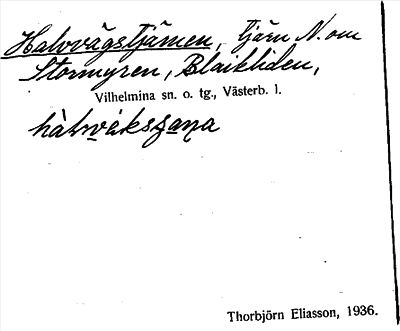 Halvvägstjärnen, tjärn N. om
Stormyren, Blaikliden,
Vilhelmina sn. o. tg., Västerb. l.
Thorbjörn Eliasson, 1936.